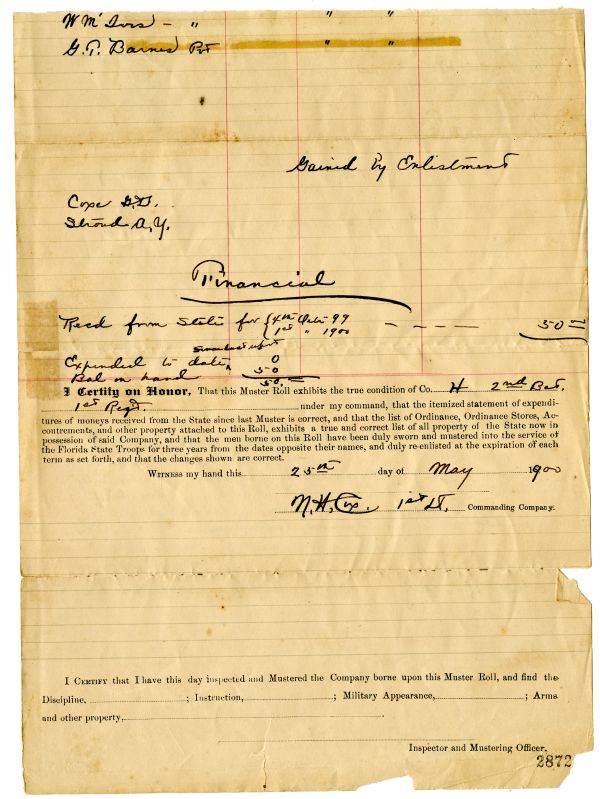 Wm Ivers - " " "
G. T. Barnes Pvt " "
Gained by Enlistment
Coxe G.D.
Stroud A.Y.
Financial
Recd from State for { 4th Qr 99 - - - - 50 00
1st " 1900
since last report
Expended to date, 0
Bal on hand 50
50. =
I Certify on Honor, That this Muster Roll exhibits the true condition of Co. H 2nd Bat.
1st Regt. under my command, that the itemized statement of expendi-
tures of moneys received from the State since last Muster is correct, and that the list of Ordinance, Ordinance Stores, Ac-
coutrements, and other property attached to this Roll, exhibits a true and correct list of all property of the State now in
possession of said Company, and that the men borne on this Roll have been duly sworn and mustered into the service of
the Florida State Troops for three years from the dates opposite their names, and duly re-enlisted at the expiration of each
term as set forth, and that the changes shown are correct.
Witness my hand this 25th day of May 1900
N. H. Cox. 1st Lt. Commanding Company.
I Certify that I have this day inspected and Mustered the Company borne upon this Muster Roll, and find the
Discipline, ; Instruction, ; Military Appearance, ; Arms
and other property,
Inspector and Mustering Officer.
2872